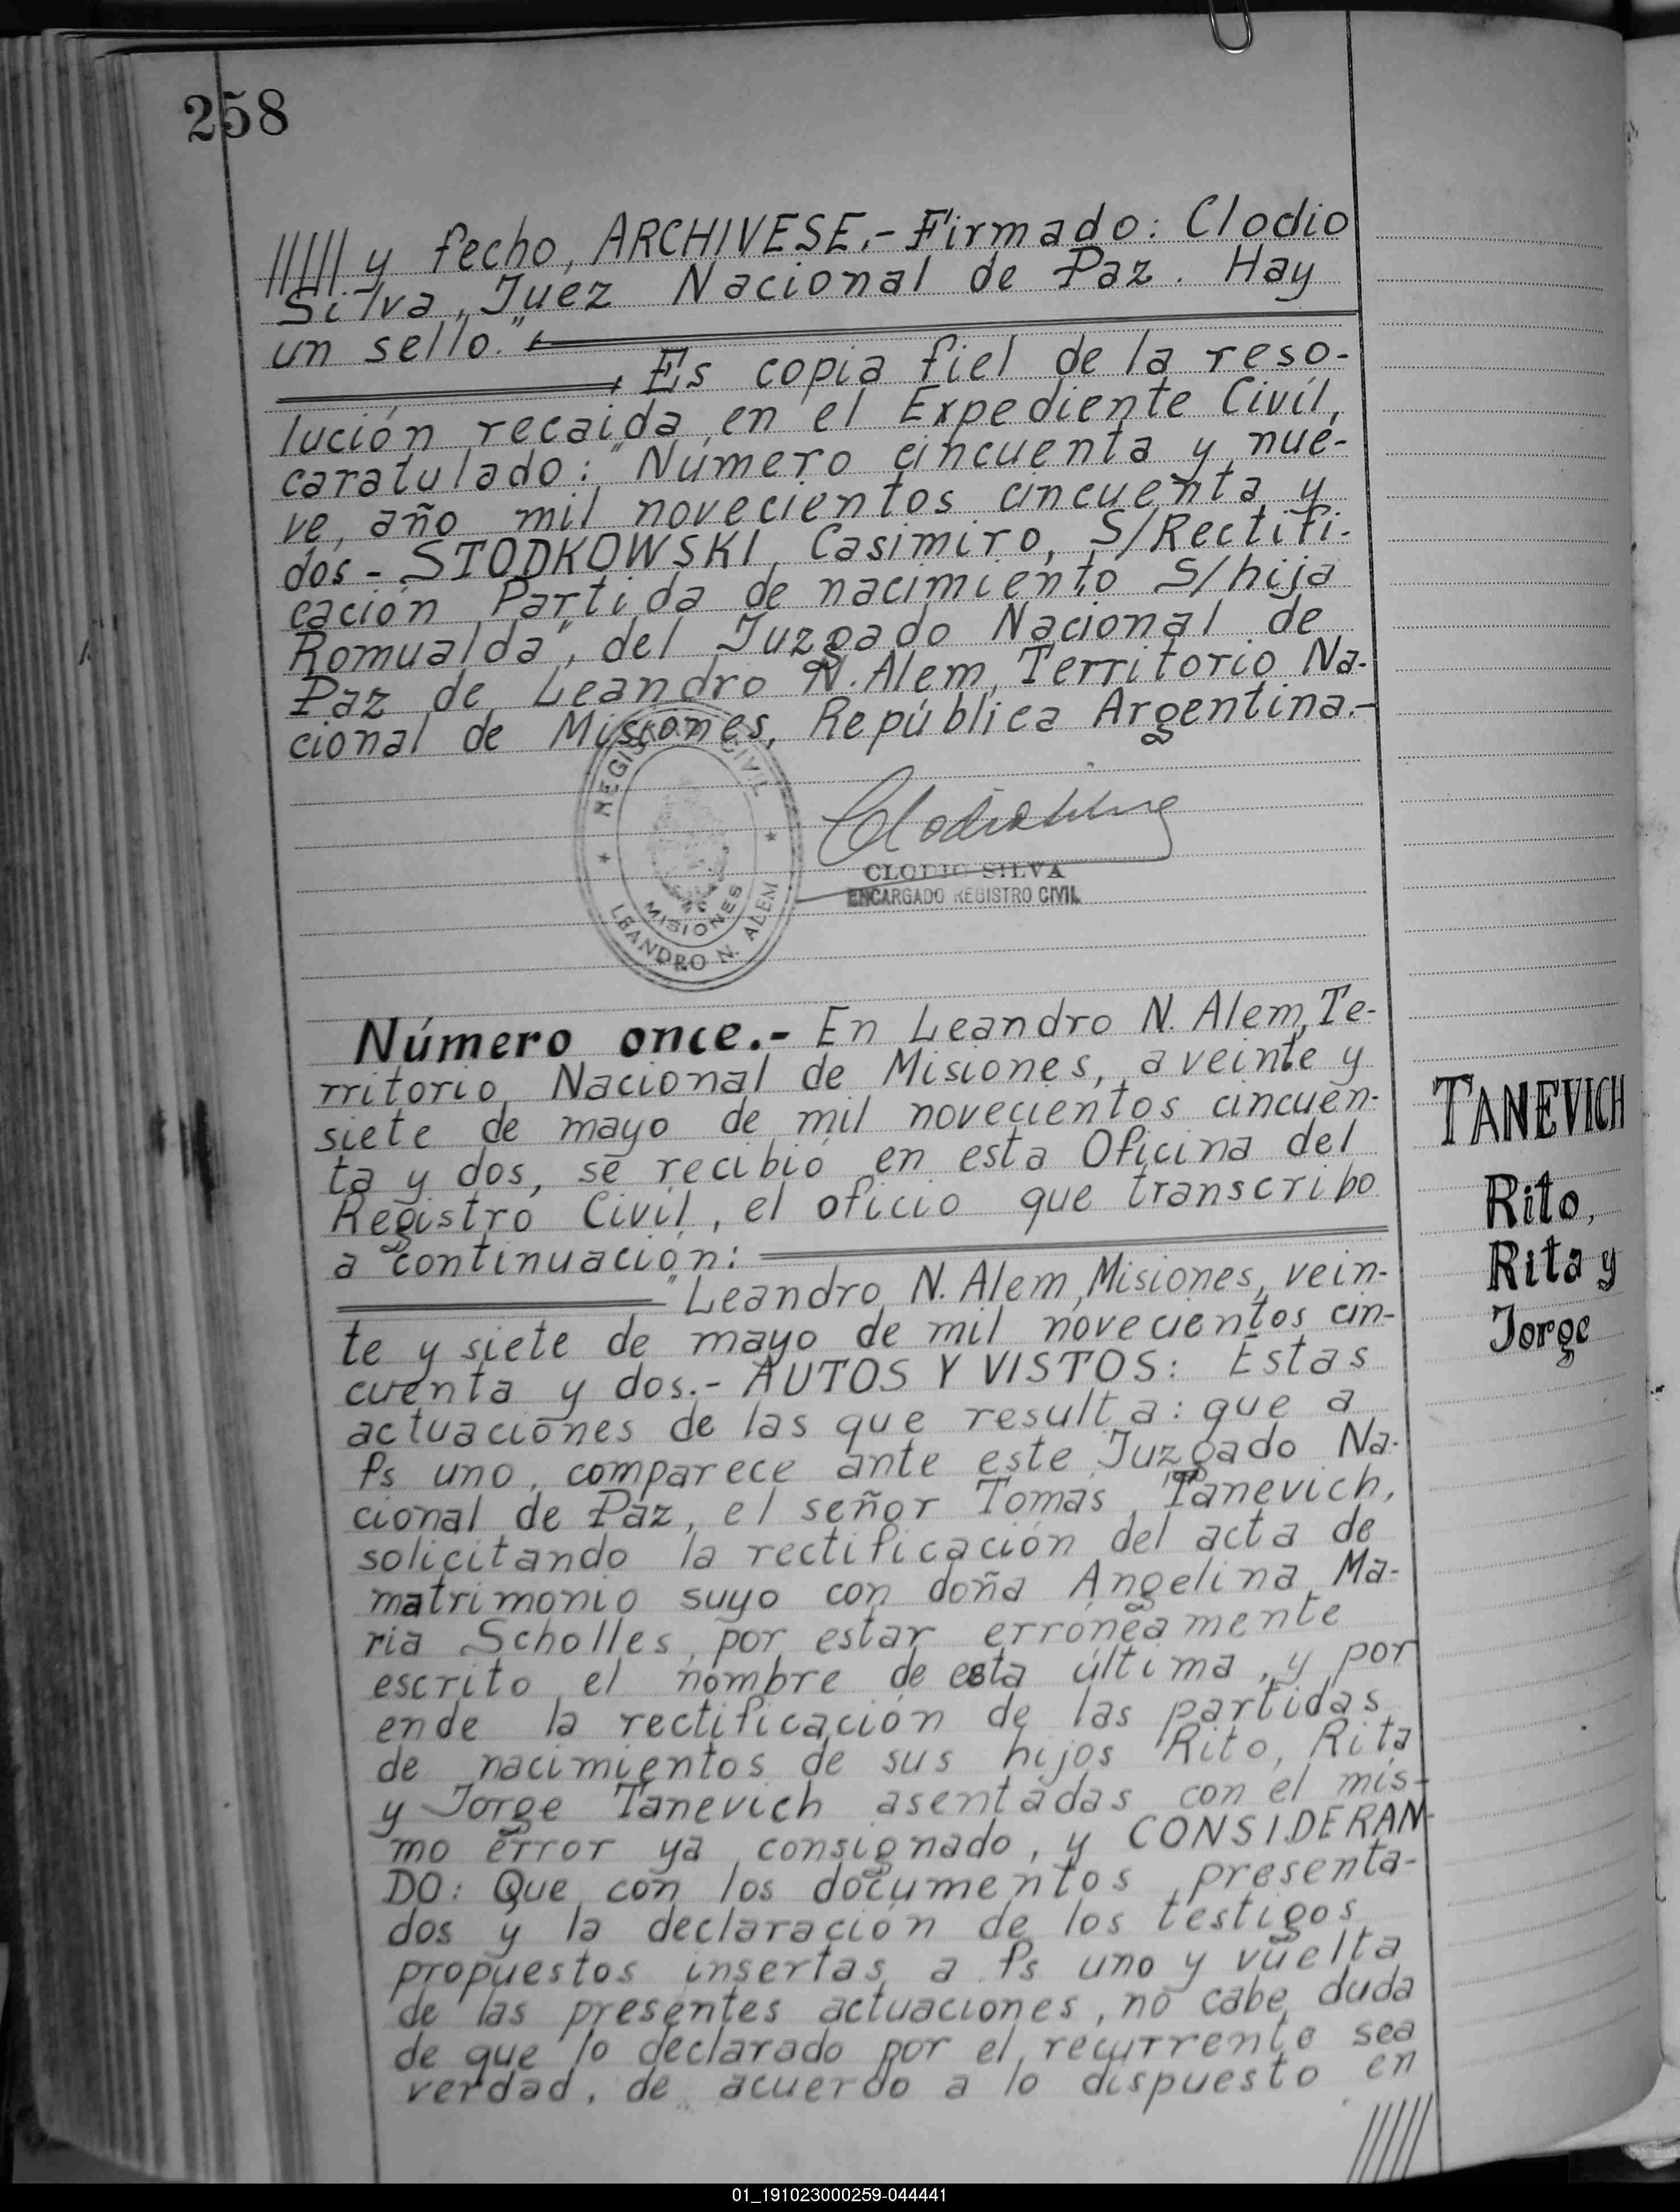 258
///// y fecho, ARCHIVESE.- Firmado: Clodio
Silva, Juez Nacional de Paz. Hay
un sello."
Es copia fiel de la reso-
lución recaida en el Expediente Civil,
caratulado: "Número cincuenta y nue-
ve, año mil novecientos cincuenta y
dos - STODKOWSKI, Casimiro, S/Rectifi-
cación Partida de nacimiento S/hija
Romualda", del Juzgado Nacional de
Paz de Leandro N. Alem, Territorio Na-
cional de Misiones, República Argentina.-
REGISTRO CIVIL
MISIONES
LEANDRO N. ALEM
CLODIO SILVA
ENCARGADO REGISTRO CIVIL
Número once.- En Leandro N. Alem, Te-
rritorio Nacional de Misiones, a veinte y
siete de mayo de mil novecientos cincuen-
ta y dos, se recibió en esta Oficina del
Registro Civil, el oficio que transcribo
a continuación:
"Leandro N. Alem, Misiones, vein-
te y siete de mayo de mil novecientos cin-
cuenta y dos.- AUTOS Y VISTOS: Estas
actuaciones de las que resulta: que a
fs uno, comparece ante este Juzgado Na-
cional de Paz, el señor Tomás Tanevich,
solicitando la rectificación del acta de
matrimonio suyo con doña Angelina Ma-
ria Scholles, por estar erróneamente
escrito el nombre de esta última, y por
ende la rectificación de las partidas
de nacimientos de sus hijos Rito, Rita
y Jorge Tanevich asentadas con el mis-
mo error ya consignado, y CONSIDERAN-
DO: Que con los documentos presenta-
dos y la declaración de los testigos
propuestos insertas a fs uno y vuelta
de las presentes actuaciones, no cabe duda
de que lo declarado por el recurrente sea
verdad, de acuerdo a lo dispuesto en
/////
TANEVICH
Rito,
Rita y
Jorge
01_191023000259-044441